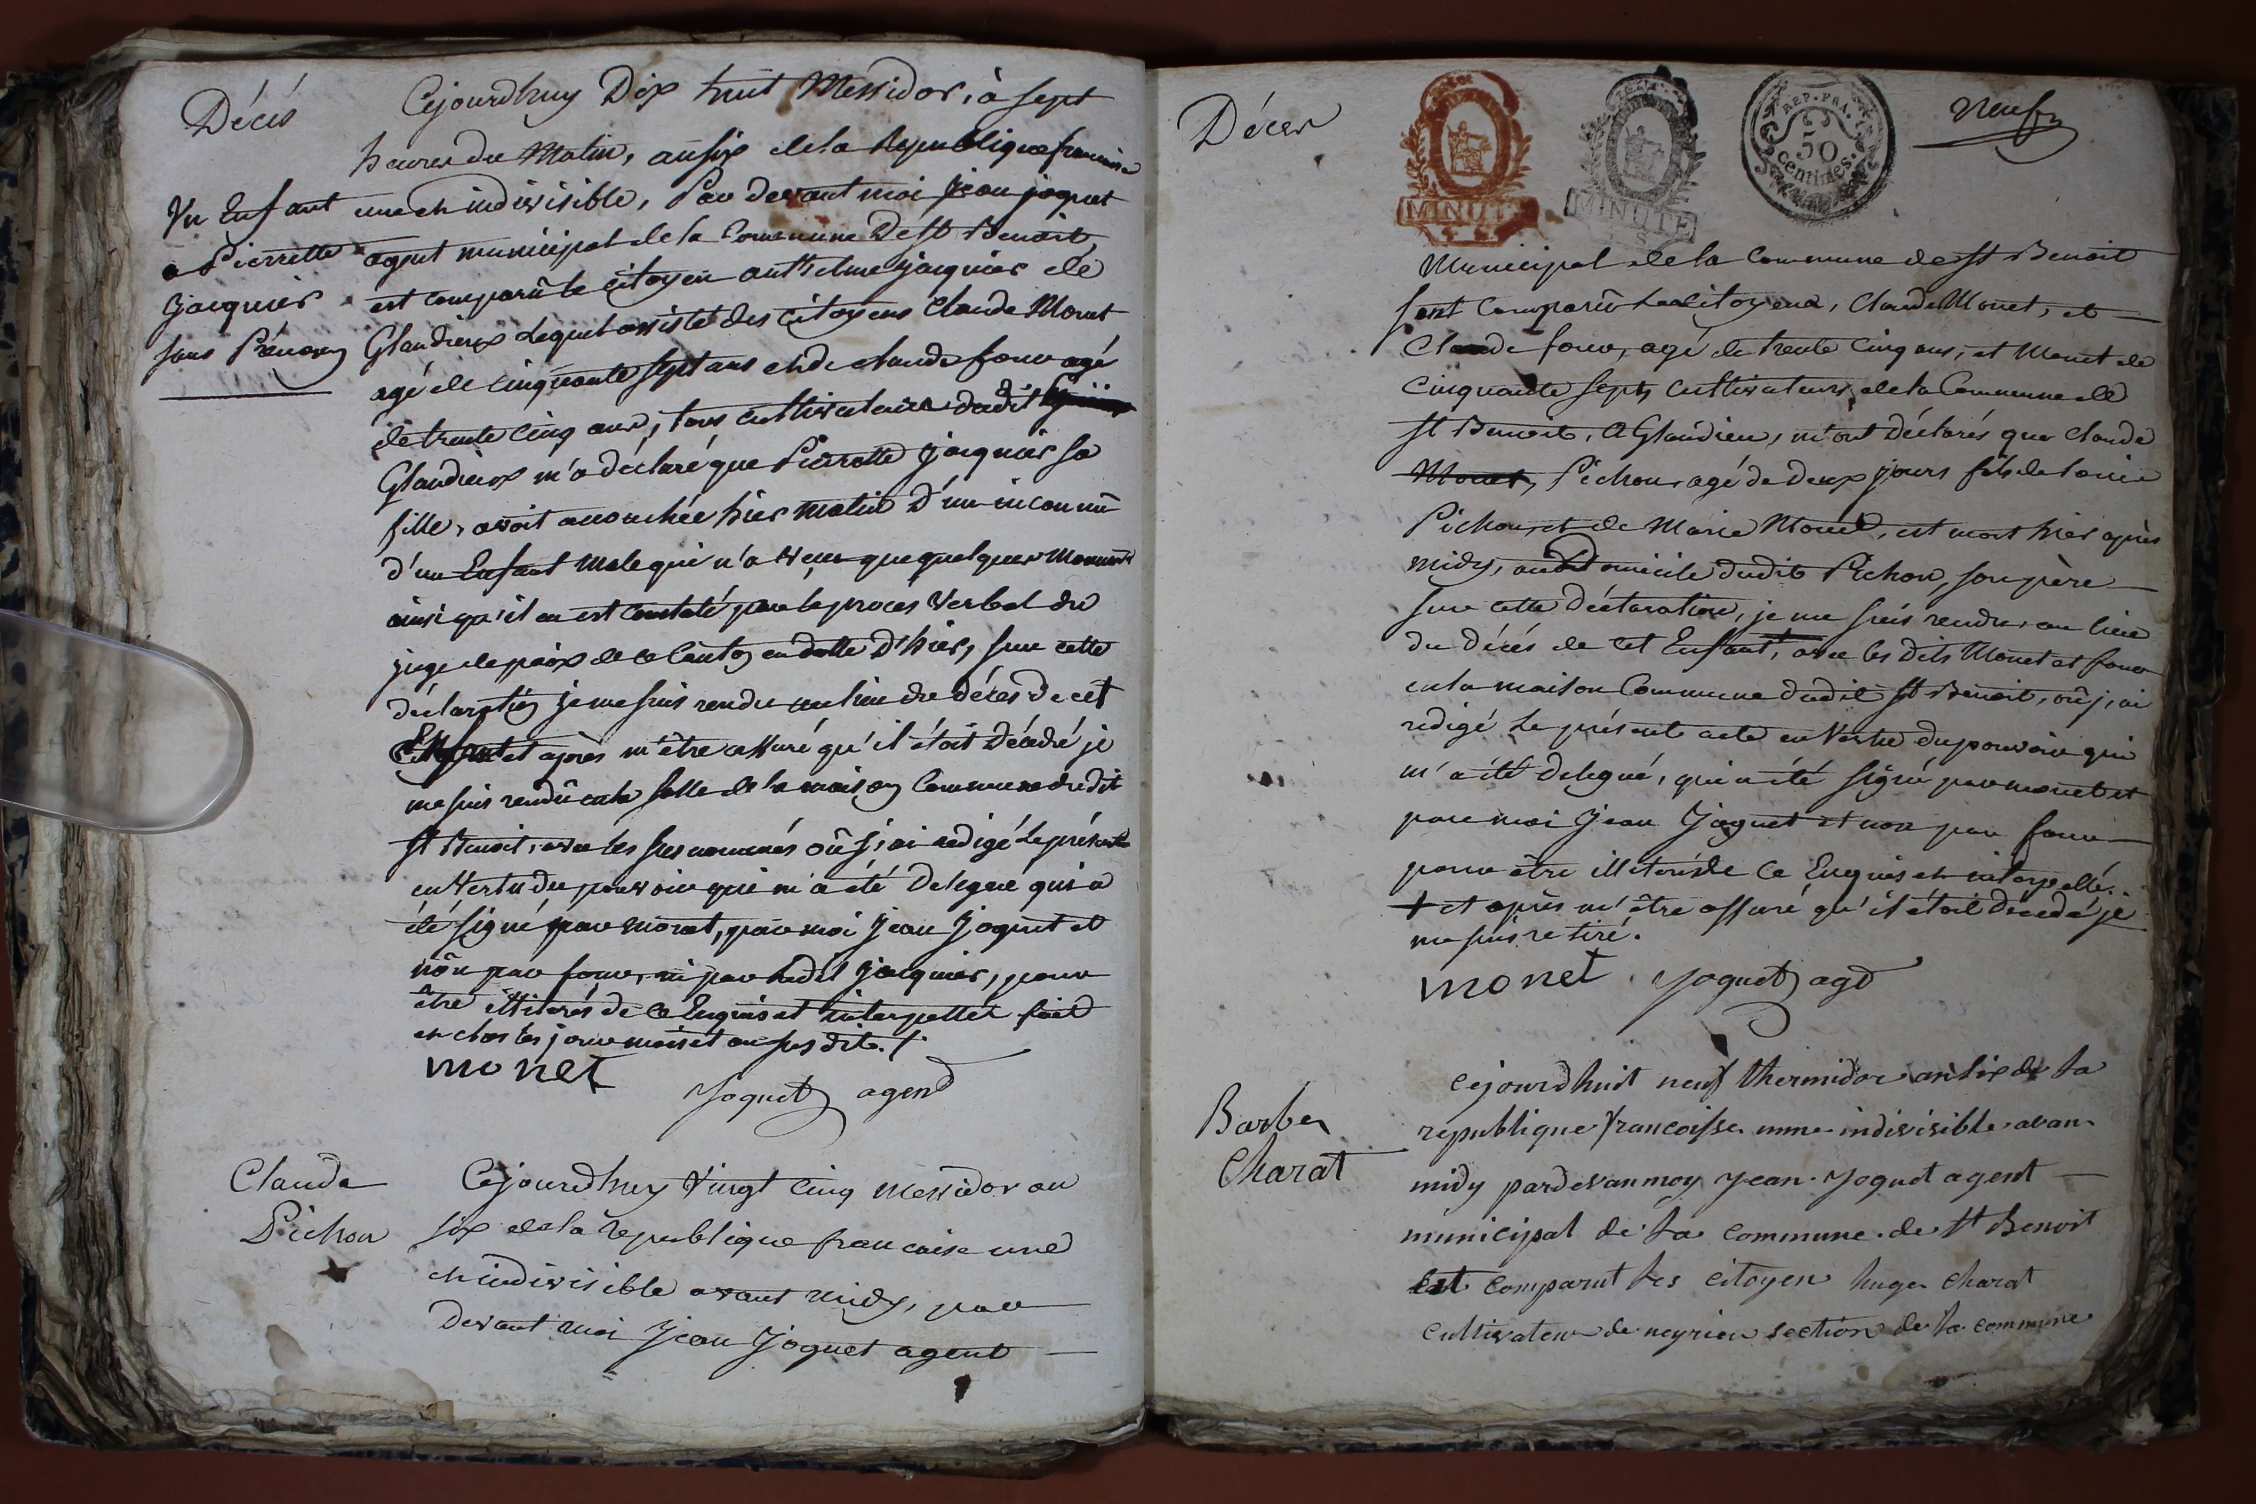 Décés
Cejourdhuy Dix huit Messidor, à sept
heures du Matin, an six de la Republique francaise
Un Enfant
a Pierrette
Jacquier
sans Prénom
une et indivisible, Par devant moi Jean joguet
agent municipal de la Commune De St Benoit
est comparû le citoyen anthelme jacquier de
Glandieux lequel assisté des citoyens Claude Monet
agé de cinquante sept ans et de claude four agé
de trente cinq ans, tous cultivateurs dudit
Glandieux m'a déclaré que Pierrette jacquier sa
fille, avoit accouchée hier matin D'un inconnû
d'un Enfant Male qui n'a vecu que quelques Moments
ainsi qu'il en est constaté par le proces Verbal du
juge de paix de ce Canton en datte D'hier, sur cette
déclaration je me suis rendu au lieu du décès de cet
Enfant et après m'être assuré qu'il étoit Décédé je
me suis rendû en la salle de la maison Commune dudit
St Benoit, avec les susnommés où j'ai redigé le présent
en Vertu du pouvoir qui m'a été Delegué qui a
été signé par monet, par moi Jean Joguet et
nôn par four, ni par ledit jacquier, pour
être illiterés de ce Enquis et interpellés fait
et clos les jour mois et an sus dits./.
monet
Joguet agent
Claude
Pichon
Cejourdhuy Vingt cinq Messidor an
six de la republique francaise une
et indivisible avant midy, par
devant moi Jean Joguet agent
Décès
MINUTE
MINUTE
REP. FRA.
50
centimes.
neuf
Municipal de la Commune de St Benoit
sont Comparû les citoyens, Claude Monet, et
Claude four, agé de trente cinq ans, et Monet de
Cinquante sept, cultivateurs de la Commune de
St Benoit, a Glandieu, m'ont déclarés que Claude
Monet, Pichon, agé de deux jours fils de Louis
Pichon, et de Marie Monet, est mort hier après
midy, au Domicile dudit Pichon, son père
sur cette Déclaration, je me suis rendu, au lieu
du Décés de cet Enfant, avec les dits Monet et four
en la maison Commune dudit St Benoit, où j'ai
redigé le présent acte en Vertu du pouvoir qui
m'a été delegué, qui a été signé par monet et
par moi Jean Joguet et non par four
pour être illiteré de ce Enquis et interpellé.
+ et après m'être assuré qu'il étoit décédé je
me suis retiré.
monet Joguet agt
Barbe
Charat
Cejourdhuit neuf thermidor an six de la
republique francoisse unne indivisible avan
midy pardevan moy Jean Joguet agent
municipal de la commune de St Benoit
est comparut les citoyen huge Charat
cultivateur de neyrieu section de la commune